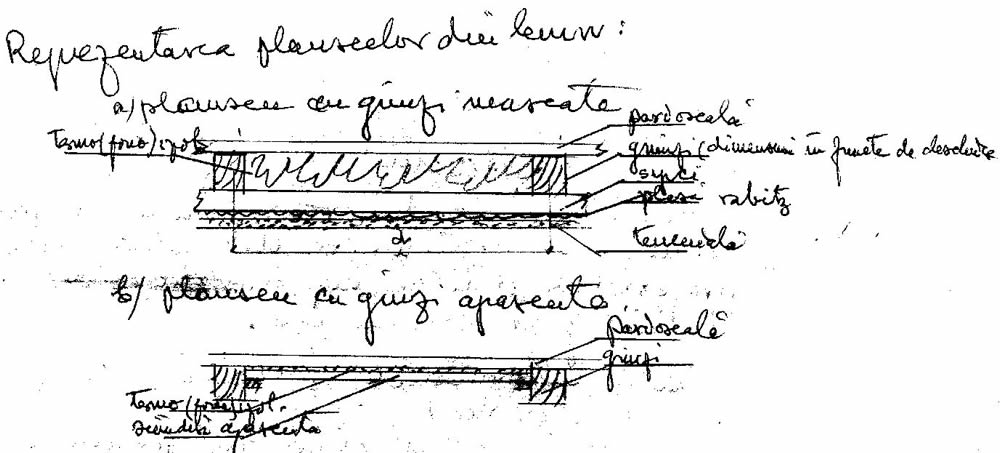 Reprezentarea planseelor din lemn:
a) planseu cu grinzi mascate
pardoseală
termo(fono)izol.
grinzi (dimensiuni în funcție de deschidere
șipci
plasă rabitz
d
tencuială
b) planseu cu grinzi aparente.
pardoseală
grinzi
termo(fono)izol.
scânduri aparente